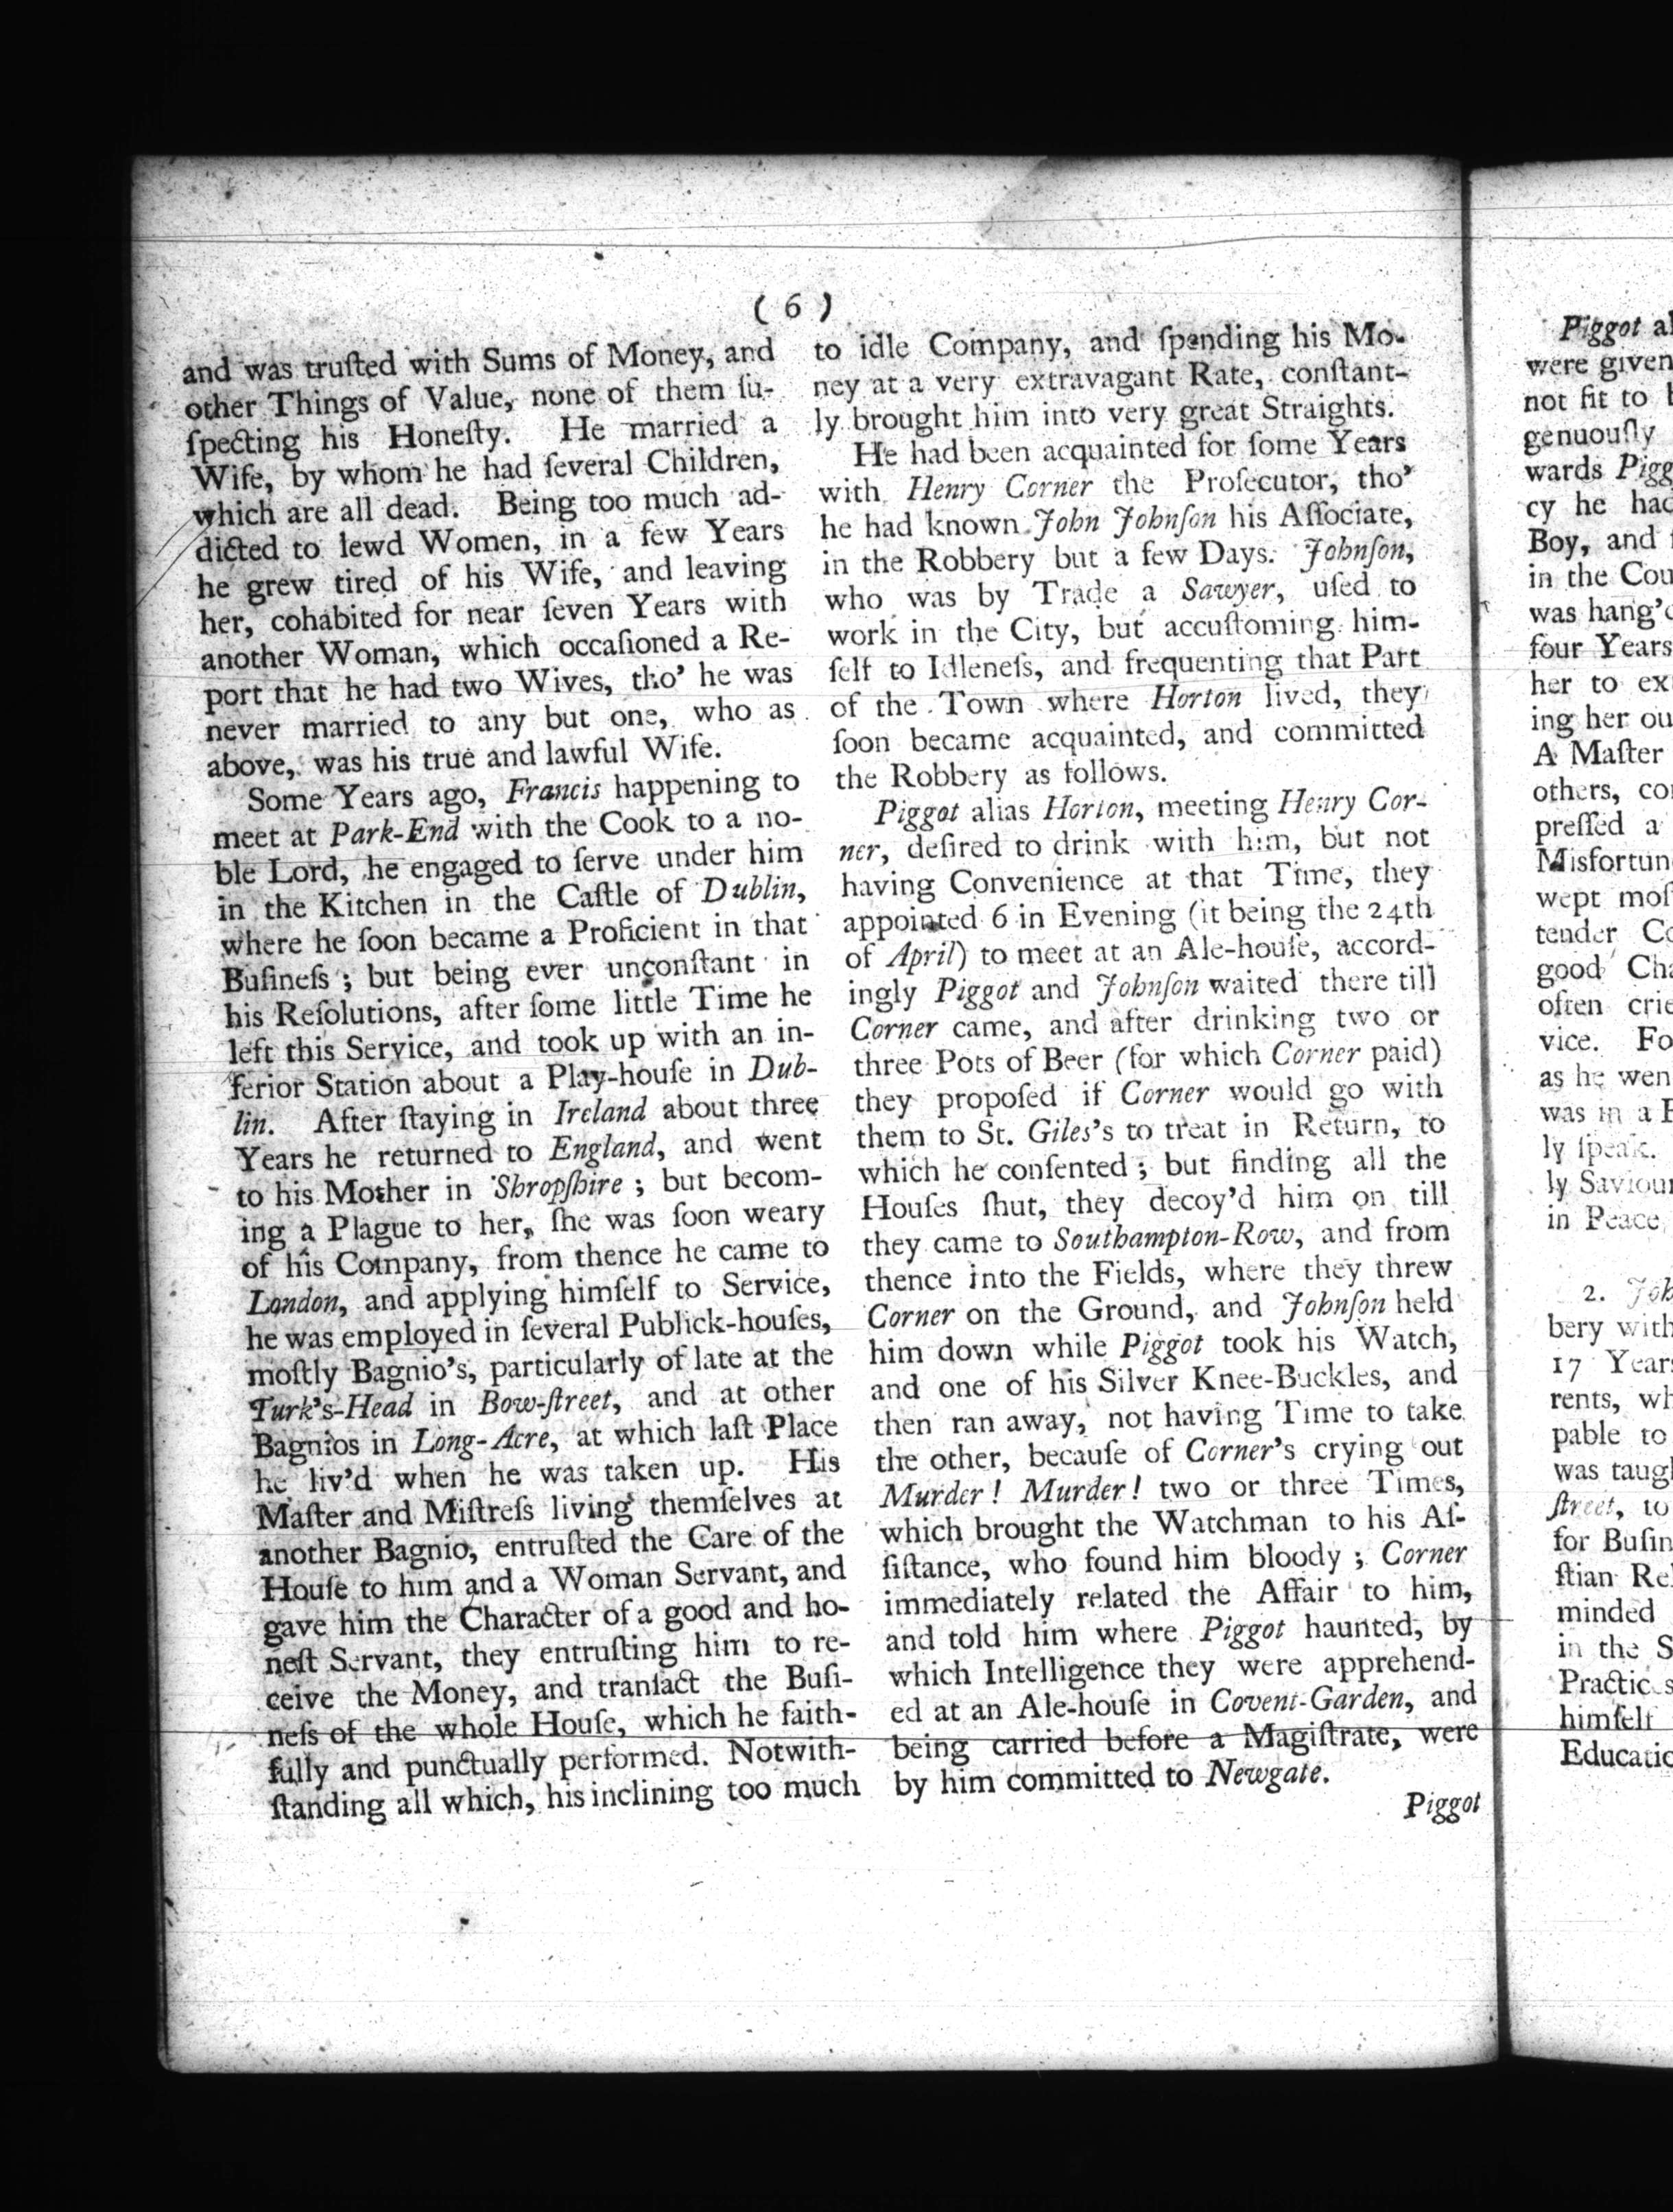 ( 6 )
and was truſted with Sums of Money, and
other Things of Value, none of them ſu-
ſpecting his Honeſty. He married a
Wife, by whom he had ſeveral Children,
which are all dead. Being too much ad-
dicted to lewd Women, in a few Years
he grew tired of his Wife, and leaving
her, cohabited for near ſeven Years with
another Woman, which occaſioned a Re-
port that he had two Wives, tho' he was
never married to any but one, who as
above, was his true and lawful Wife.
Some Years ago, Francis happening to
meet at Park-End with the Cook to a no-
ble Lord, he engaged to ſerve under him
in the Kitchen in the Caſtle of Dublin,
where he ſoon became a Proficient in that
Buſineſs ; but being ever unconſtant in
his Reſolutions, after ſome little Time he
left this Service, and took up with an in-
ferior Station about a Play-houſe in Dub-
lin. After ſtaying in Ireland about three
Years he returned to England, and went
to his Mother in Shropſhire ; but becom-
ing a Plague to her, ſhe was ſoon weary
of his Company, from thence he came to
London, and applying himſelf to Service,
he was employed in ſeveral Publick-houſes,
moſtly Bagnio's, particularly of late at the
Turk's-Head in Bow-ſtreet, and at other
Bagnios in Long-Acre, at which laſt Place
he liv'd when he was taken up. His
Maſter and Miſtreſs living themſelves at
another Bagnio, entruſted the Care of the
Houſe to him and a Woman Servant, and
gave him the Character of a good and ho-
neſt Servant, they entruſting him to re-
ceive the Money, and tranſact the Buſi-
neſs of the whole Houſe, which he faith-
fully and punctually performed. Notwith-
ſtanding all which, his inclining too much
to idle Company, and ſpending his Mo-
ney at a very extravagant Rate, conſtant-
ly brought him into very great Straights.
He had been acquainted for ſome Years
with Henry Corner the Proſecutor, tho'
he had known John Johnſon his Aſſociate,
in the Robbery but a few Days. Johnſon,
who was by Trade a Sawyer, uſed to
work in the City, but accuſtoming him-
ſelf to Idleneſs, and frequenting that Part
of the Town where Horton lived, they
ſoon became acquainted, and committed
the Robbery as follows.
Piggot alias Horton, meeting Henry Cor-
ner, deſired to drink with him, but not
having Convenience at that Time, they
appointed 6 in Evening (it being the 24th
of April) to meet at an Ale-houſe, accord-
ingly Piggot and Johnſon waited there till
Corner came, and after drinking two or
three Pots of Beer (for which Corner paid)
they propoſed if Corner would go with
them to St. Giles's to treat in Return, to
which he conſented ; but finding all the
Houſes ſhut, they decoy'd him on till
they came to Southampton-Row, and from
thence into the Fields, where they threw
Corner on the Ground, and Johnſon held
him down while Piggot took his Watch,
and one of his Silver Knee-Buckles, and
then ran away, not having Time to take
the other, becauſe of Corner's crying out
Murder! Murder! two or three Times,
which brought the Watchman to his Aſ-
ſiſtance, who found him bloody ; Corner
immediately related the Affair to him,
and told him where Piggot haunted, by
which Intelligence they were apprehend-
ed at an Ale-houſe in Covent-Garden, and
being carried before a Magiſtrate, were
by him committed to Newgate.
Piggot
Piggot
were given
not fit to
genuouſly
wards
cy he had
Boy, and
in the
was hang'd
four Years
her to
ing her
A Maſter
others,
preſſed a
wept
tender
good
often
vice.
as he
was in a
ly ſpeak.
ly
in Peace,
2.
bery with
17
rents,
pable to
was
ſtreet, to
for
ſtian
minded
in the
himſelf